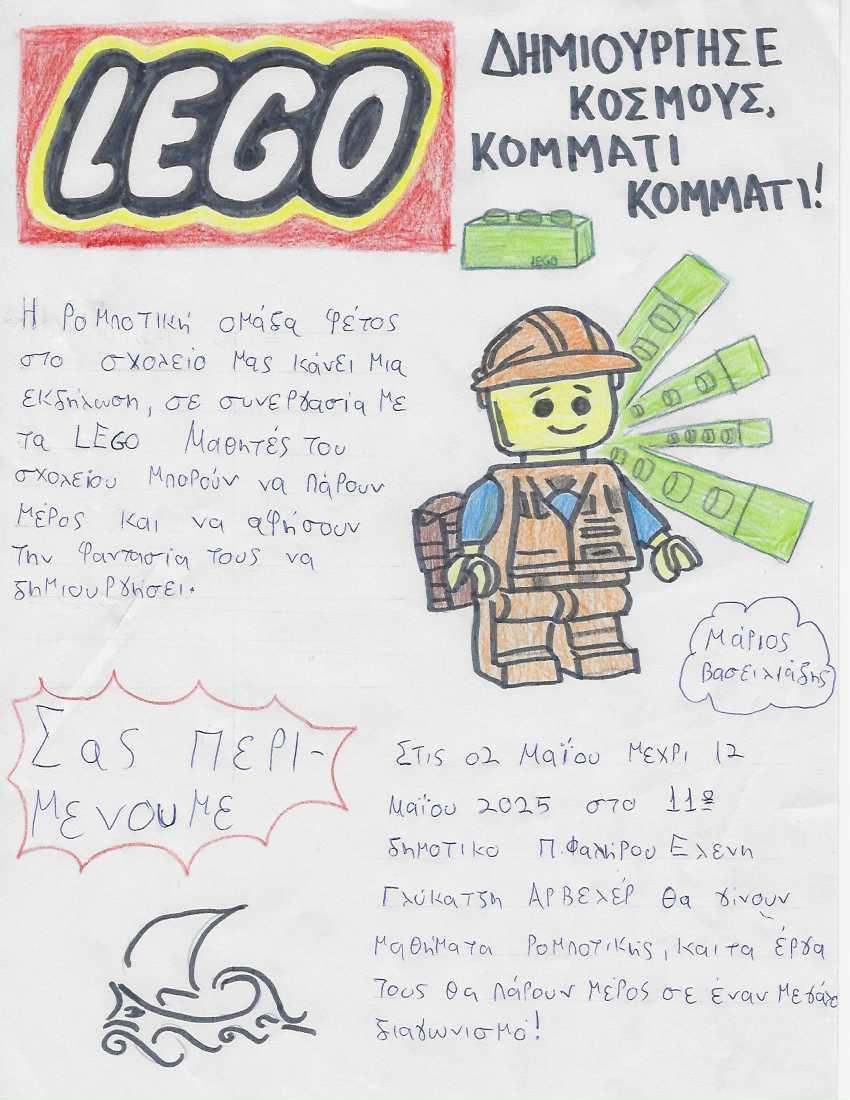 LEGO
ΔΗΜΙΟΥΡΓΗΣΕ
ΚΟΣΜΟΥΣ,
ΚΟΜΜΑΤΙ
ΚΟΜΜΑΤΙ!
LEGO
Η ρομποτική ομάδα φέτος
στο σχολείο μας κάνει μια
εκδήλωση, σε συνεργασία με
τα LEGO Μαθητές του
σχολείου μπορούν να πάρουν
μέρος και να αφήσουν
την φαντασία τους να
δημιουργήσει.
Μάριος
Βασειλιάδης
Σας περι-
μενουμε
Στις 02 Μαΐου μεχρι 12
Μαΐου 2025 στο 11º
δημοτικο Π.Φαλήρου Ελενη
Γλύκατζη ΑΡΒΕΛΕΡ θα γίνουν
μαθήματα ρομποτικής, και τα έργα
τους θα πάρουν μέρος σε έναν μεγάλο
διαγωνισμό!